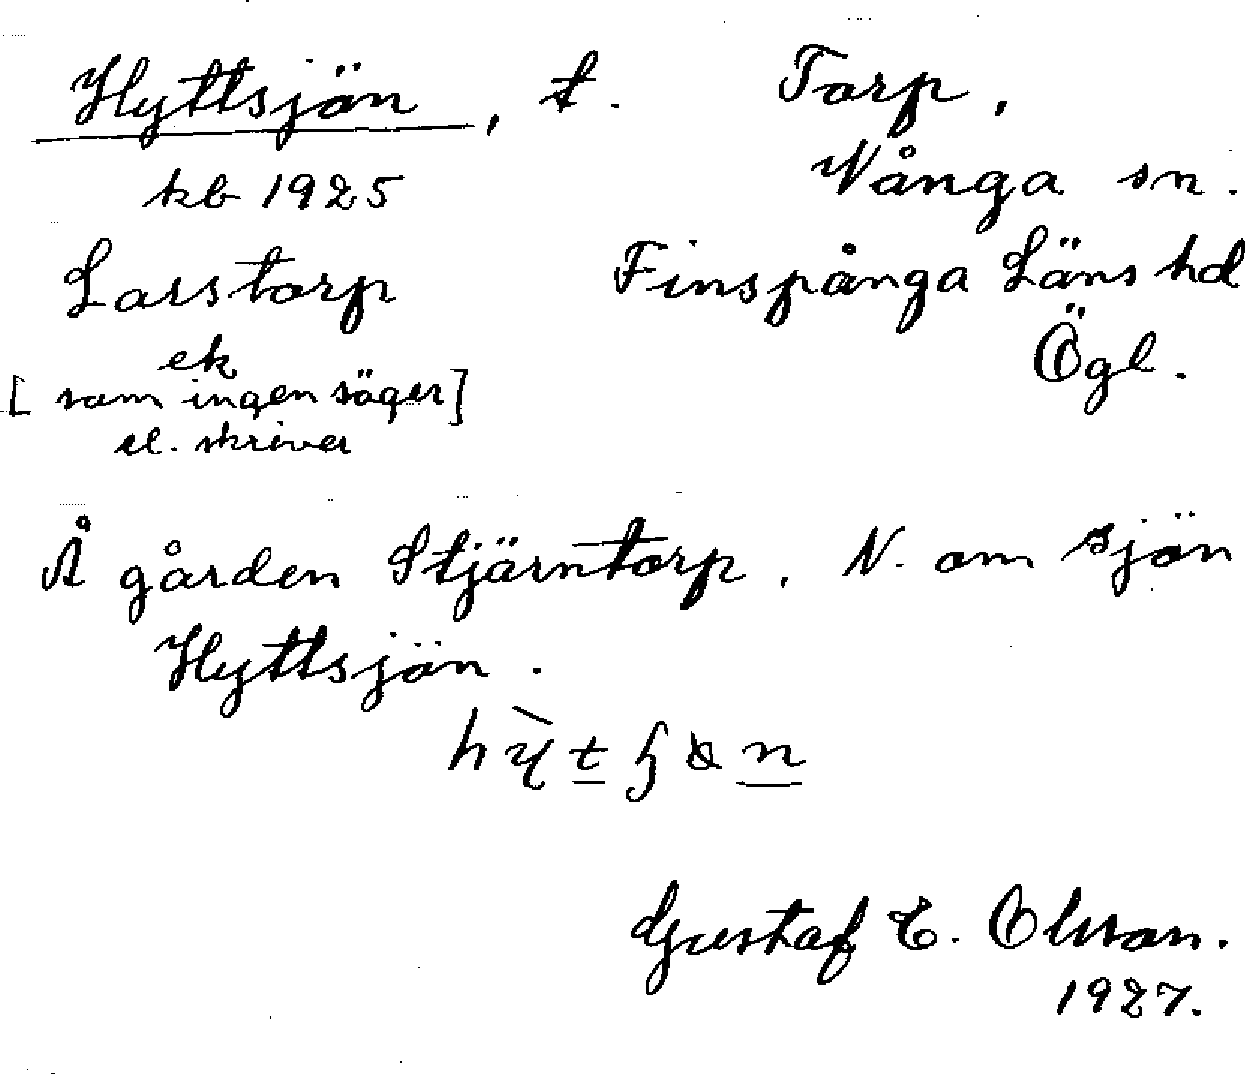 Hyttsjön, t. Torp,
kb 1925 Vånga sn.
Larstorp Finspånga Läns hd
ek Ögl.
[som ingen säger]
el. skriver
Å gården Stjärntorp. N. om sjön
Hyttsjön.
Gustaf E. Olsson.
1927.